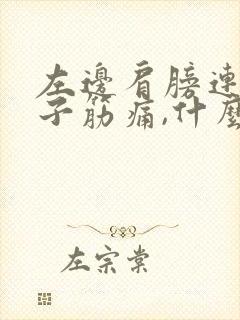 左邊肩膀連
子筋痛,什麼
左宗棠